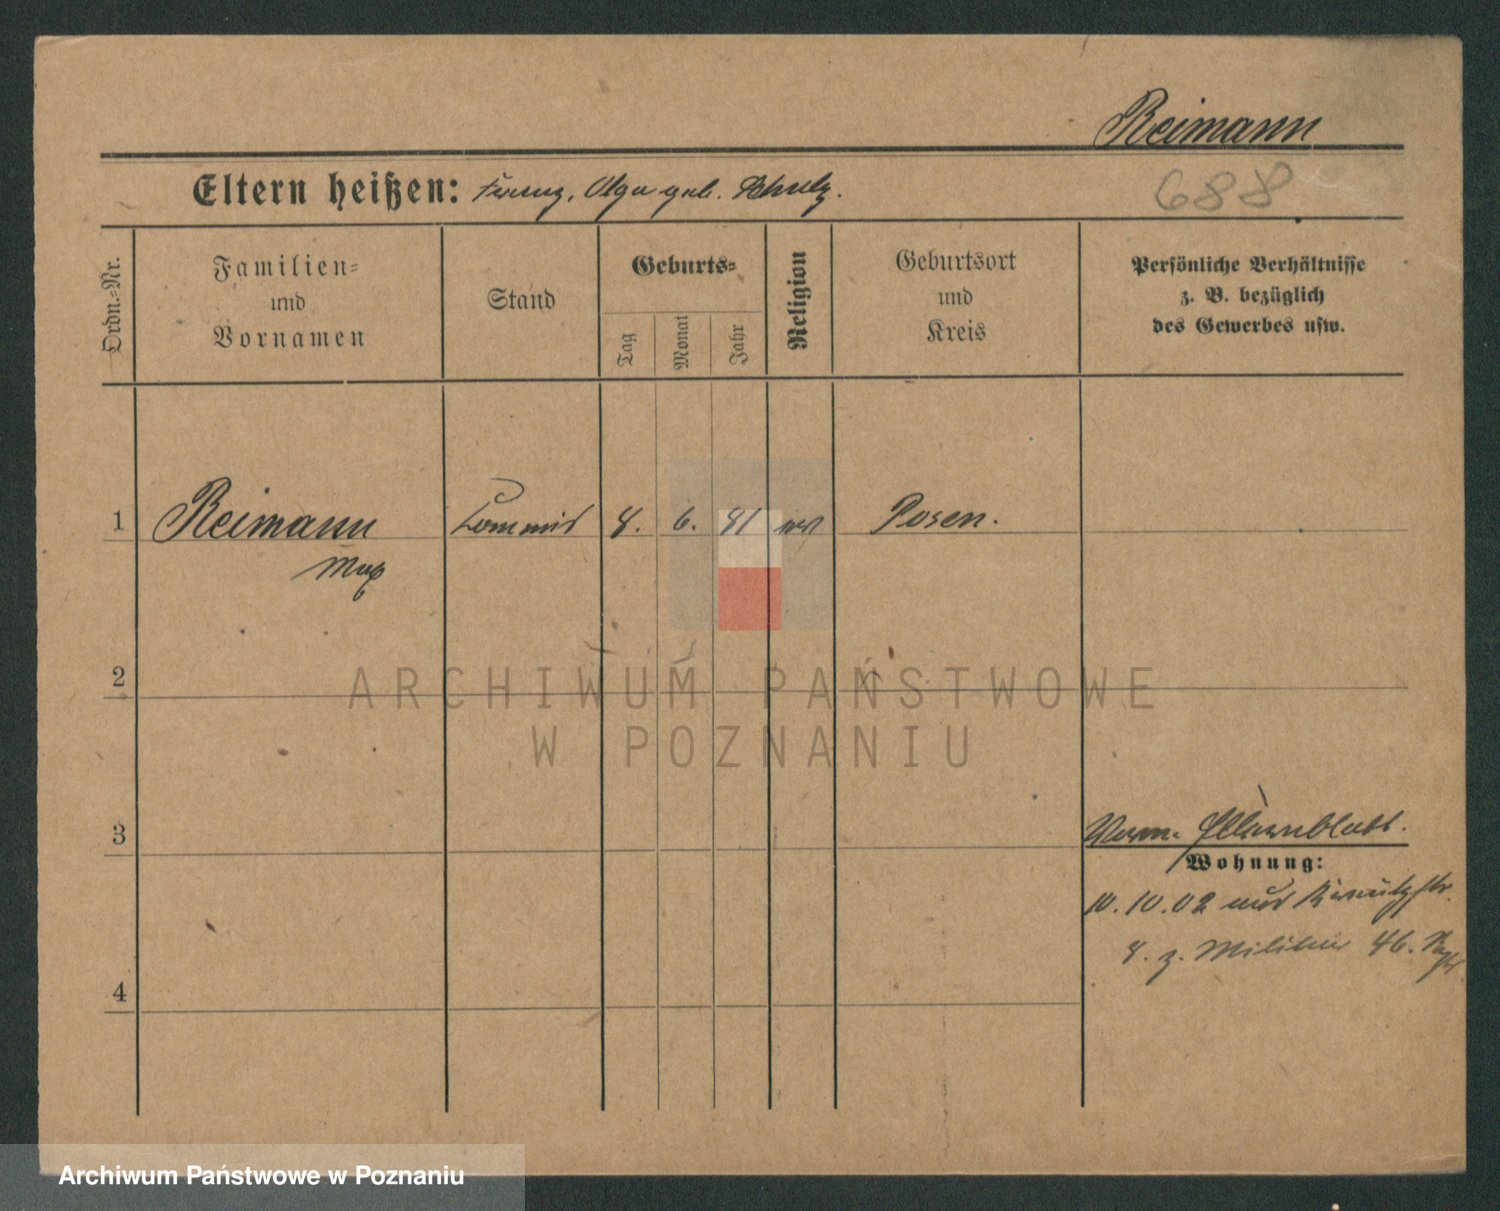 Reimann
Eltern heißen: Franz, Olga geb. Schulz.
688
Ordn.-Nr.
Familien-
und
Vornamen
Stand
Geburts-
Tag
Monat
Jahr
Religion
Geburtsort
und
Kreis
Persönliche Verhältnisse
z. B. bezüglich
des Gewerbes usw.
1 Reimann Commis 8. 6. 81 Posen.
Max
2
3
Elternblatt.
Wohnung:
10.10.02
z. Militär 46.
4
ARCHIWUM PAŃSTWOWE
W POZNANIU
Archiwum Państwowe w Poznaniu